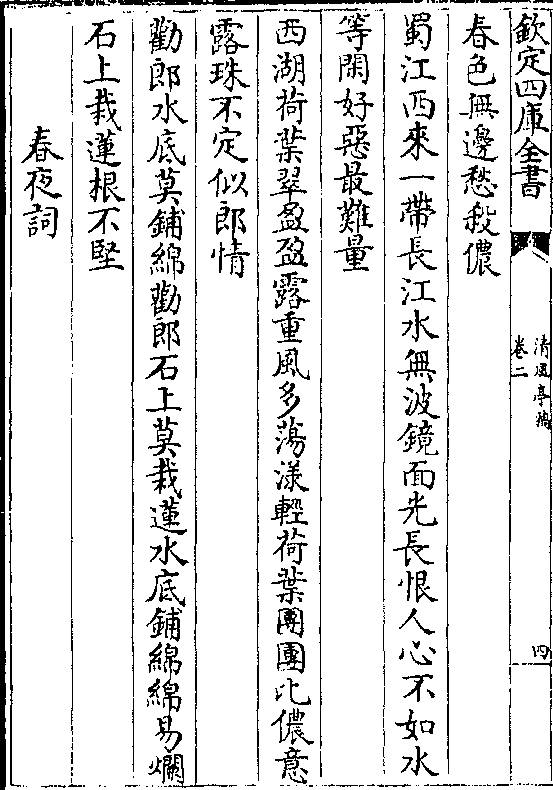 欽定四庫全書
清江亭稿
卷二
四
春色無邊愁殺儂
蜀江西來一帶長江水無波鏡面光長恨人心不如水
等閑好惡最難量
西湖荷葉翠盈盈露重風多蕩漾輕荷葉團團比儂意
露珠不定似郎情
勸郎水底莫鋪綿勸郎石上莫栽蓮水底鋪綿綿易爛
石上栽蓮根不堅
春夜詞